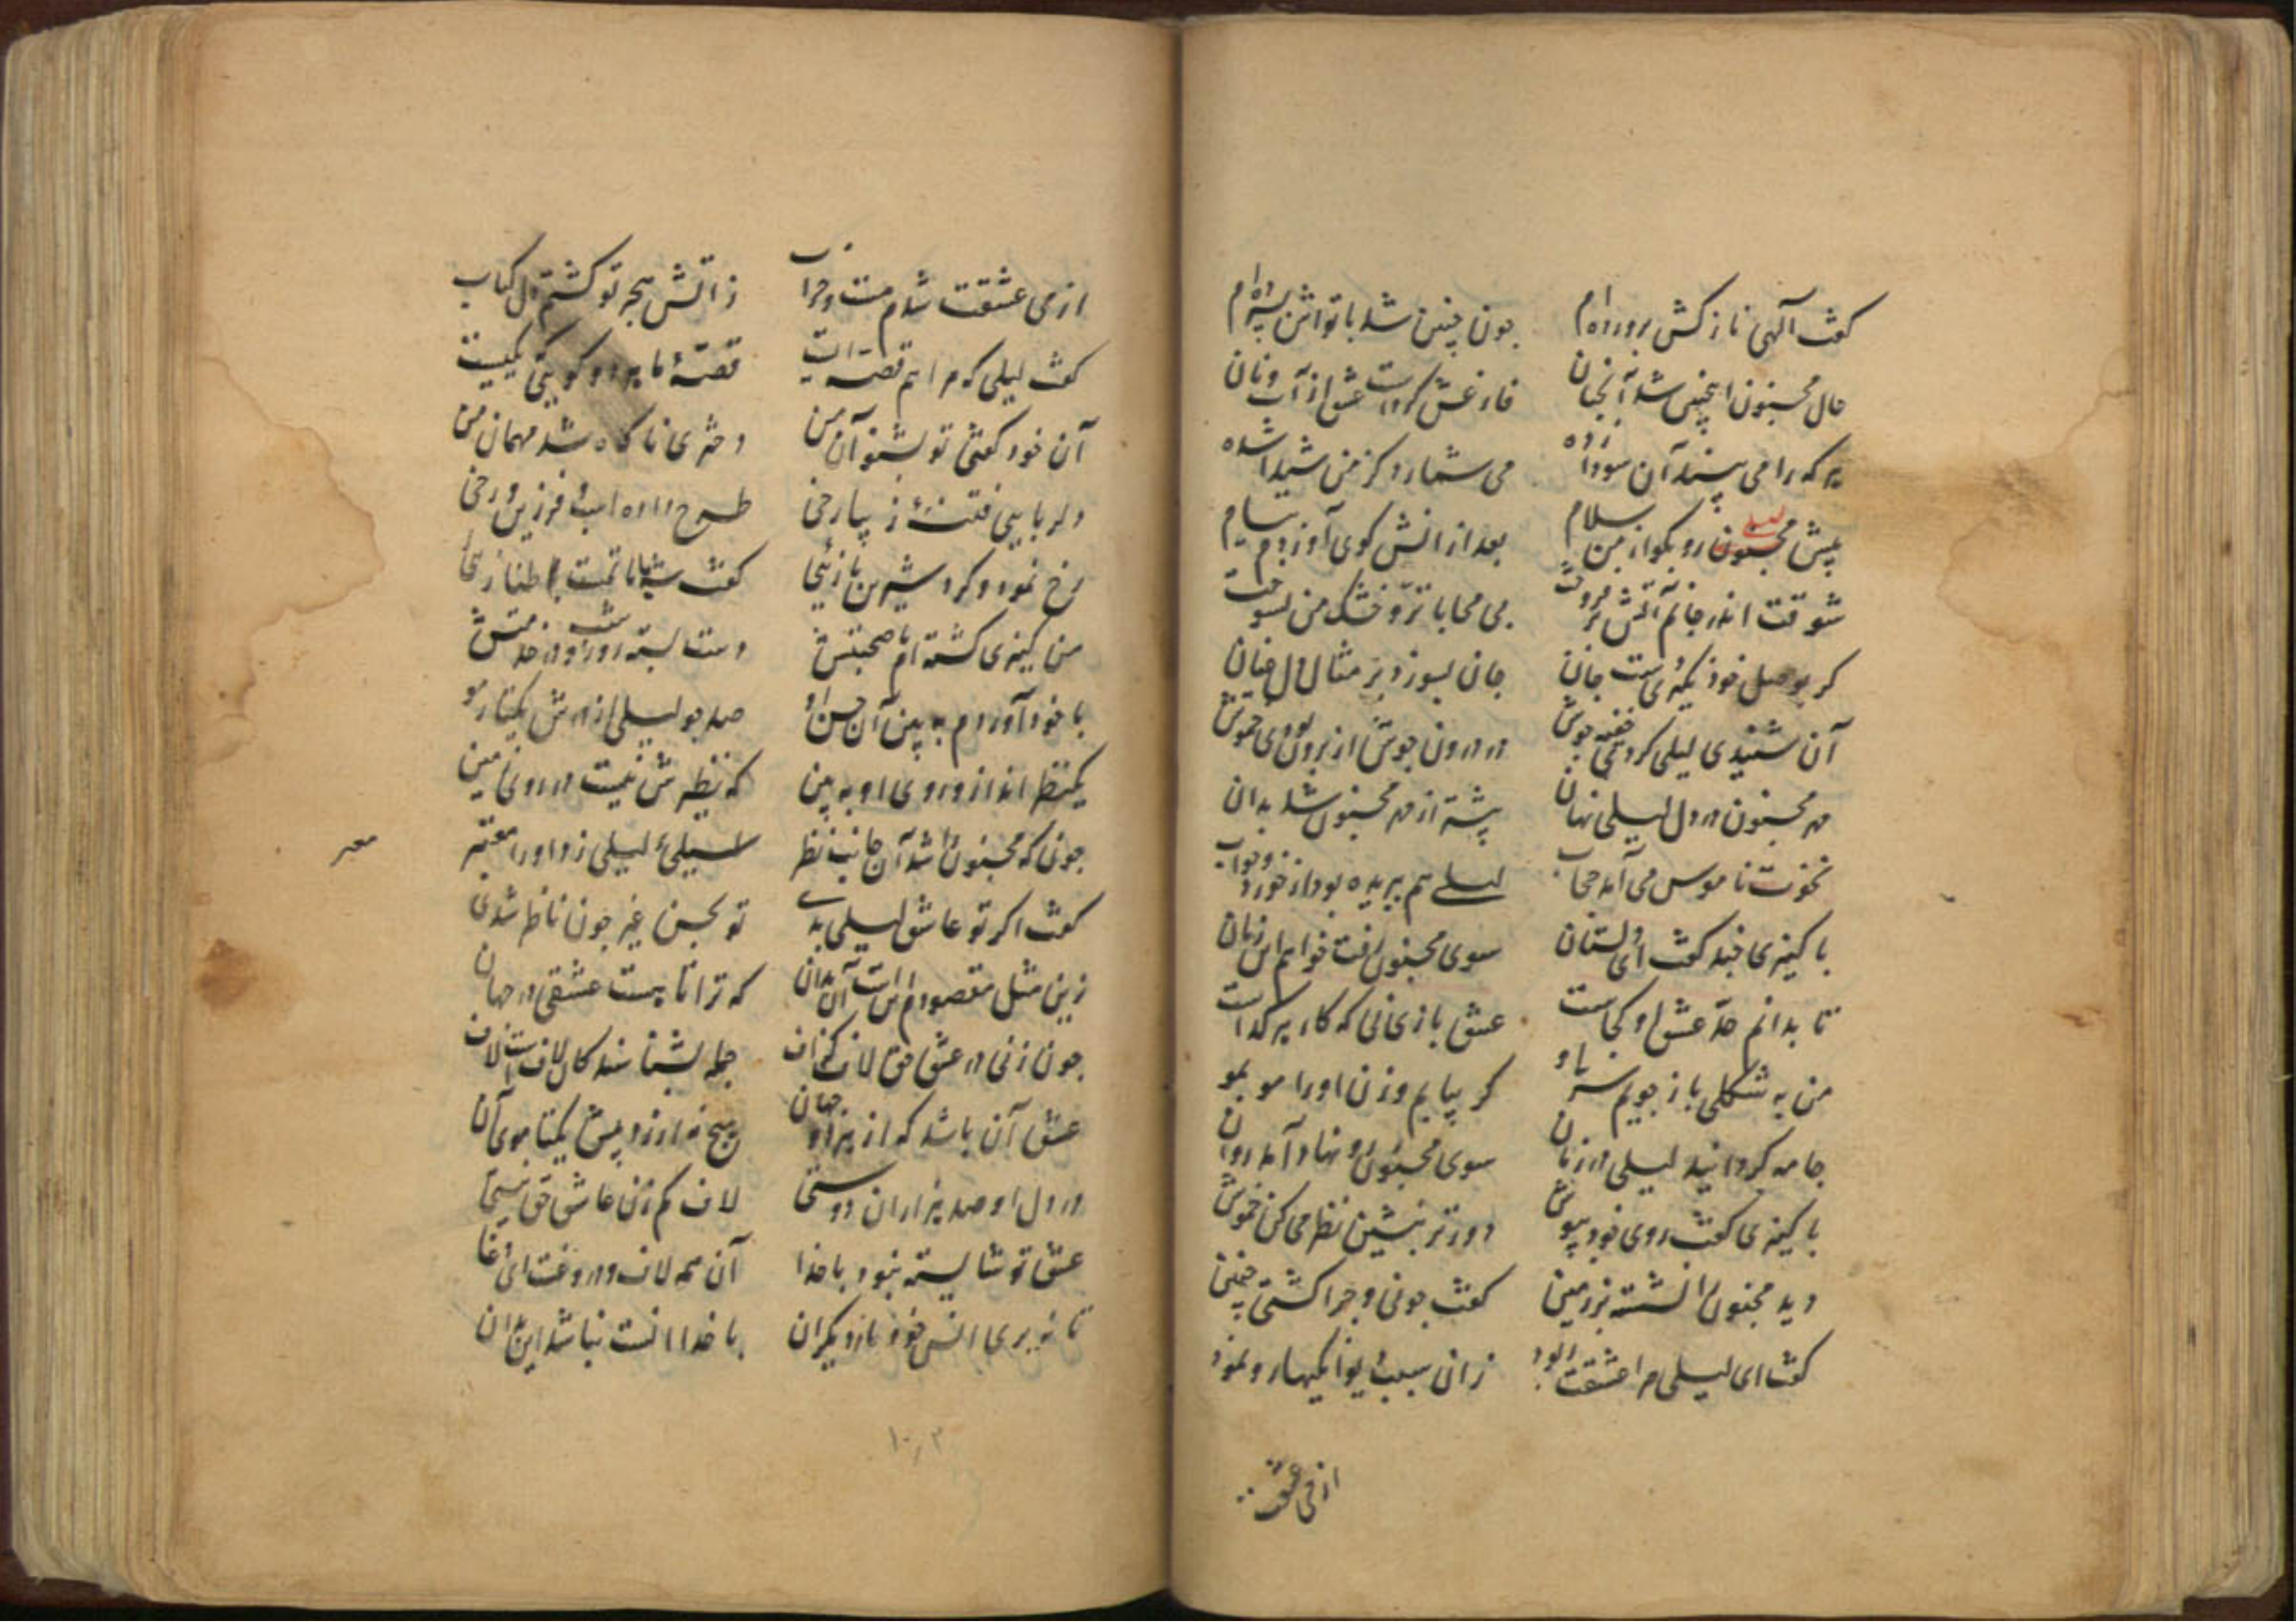 گفت آلهی نازکش پرورده‌ام چون چنین شد با تو اش بسپرده‌ام
حال مجنون اینچنین شد آنچنان فارغش کردست عشق از آب و نان
هر که را می بیند آن سودا زده می شمارد کز من شیدا شده
پیش مجنون رو بگو از من سلام بعد از انش کوی آوردم پیام
لیلی
شوقت اندر جانم آتش بر فروخت بی محابا تر و خشک من بسوخت
گر بوصل خود نگیری دست جان جان بسوزد بر مثال دل
آن شنیدی لیلی کردی خفیه جوش در درون جوش از برون بودی خموش
مهر مجنون در دل لیلی نهان پیشتر از مهر مجنون شد بدان
نخوت ناموس می آمد حجاب لیلی هم ببریده بود از خورد و خواب
با کنیزی چند گفت ای دلستان سوی مجنون رفت خواهم این زمان
تا بدانم حد عشق او کجاست عشق بازی نی که کار هر گداست
من به شکلی باز جویم سر او گر بپایم وزن او را مو بمو
جامه گردانید لیلی در زمان سوی مجنون رو نهاد آمد روان
با کنیزی گفت روی خود بپوش دورتر بنشین نظر می کن خموش
دید مجنون را نشسته بر زمین گفت چونی و چرا گشتی چنین
گفت ای لیلی مرا عشقت ربود زان سبب دیوانگیها رو نمود
از می عشقت
از می عشقت شدم مست و خراب ز آتش هجر تو گشتم دل کباب
گفت لیلی که مرا هم قصه ایست قصهٔ ما هر دو گویی یکیست
آن خود گفتی تو بشنو آن من دختری ناگاه شد مهمان من
دلربایی فتنهٔ زیبا رخی طرح داده اسب و فرزین و رخی
رخ نمود و کرد شیرین بازئی گفت شه ماتت طنازئی
من کنیزی گشته ام با صحبتش دست بسته روز و شب در خدمتش
با خود آوردم به بین آن حسن او صد چو لیلی ارزدش یکتار مو
یکنظر انداز و روی او به بین که نظیرش نیست در روی زمین
چون که مجنون را شد آن جانب نظر سیلیٔ لیلی زد او را معتبر
معبر
گفت اگر تو عاشق لیلی بدی تو بحسن غیر چون ناظر شدی
زین مثل مقصودم اینست آن بدان که ترا تا هست عشقی در جهان
چون زنی در عشق حق لاف گزاف جمله بشناسند کان لافست لاف
عشق آن باشد که از هر دو جهان هیچ نه ارزد پیش یکتا موی آن
در دل او صد هزاران دوستی لاف کم زن عاشق حق نیستی
عشق تو شایسته نبود با خدا آن همه لاف و دروغست ای دغا
تا نه بری انس خود با دیگران با خدا انست نباشد این بدان
۱۰۳